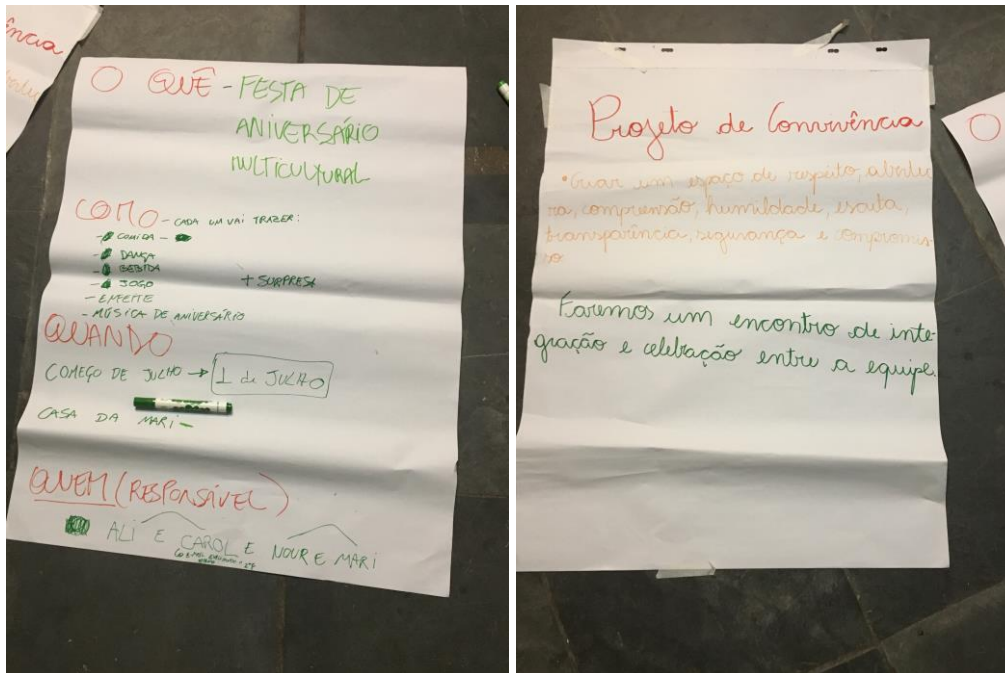 ência
O QUÊ - FESTA DE
ANIVERSÁRIO
MULTICULTURAL
COMO - CADA UM VAI TRAZER:
- COMIDA -
- DANÇA
- BEBIDA
- JOGO
+ SURPRESA
- ENFEITE
- MÚSICA DE ANIVERSÁRIO
QUANDO
COMEÇO DE JULHO → 1 de JULHO
CASA DA MARI -
QUEM (RESPONSÁVEL)
ALI E CAROL E NOUR E MARI
Projeto de Convivência
• Criar um espaço de respeito, abertu
ra, compreensão, humildade, escuta,
transparência, segurança e compromis-
so.
Faremos um encontro de inte-
gração e celebração entre a equipe.
O